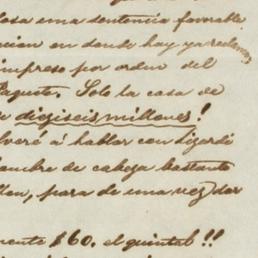 losa una sentencia favorable
cion en donde hay ya reclam
impreso por orden del
Paquete. Solo la casa de
diezyseis millones!
lveré á hablar con Lizardi
ombre de cabeza bastante
llen, para de una vez dar
mente $60. el quintal!!